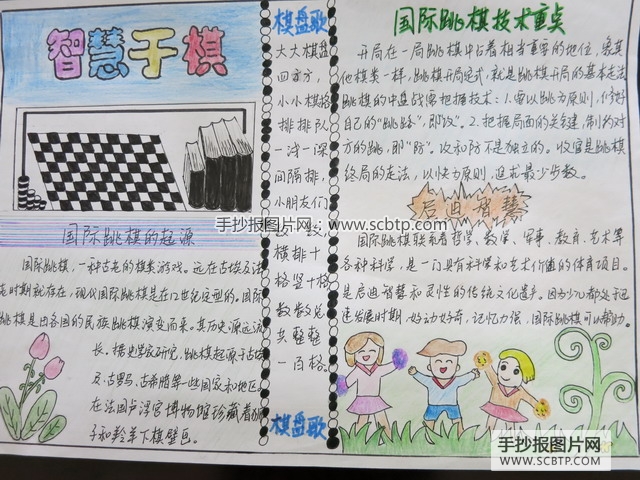 智慧于棋
国际跳棋的起源
国际跳棋,一种古老的棋类游戏。远在古埃及法
老时期就存在,现代国际跳棋是在12世纪定型的。国际
跳棋是由各国的民族跳棋演变而来。其历史源远流
长。据史学家研究,跳棋起源于古埃
及、古罗马、古希腊等一些国家和地区
在法国卢浮宫博物馆珍藏着狮
子和羚羊下棋壁画。
棋盘歌
大大棋盘
四方方,
小小棋格
排排队
一浅一深
间隔排,
小朋友们
数一数
横排十
格竖十格
数数总
共整整
一百格。
棋盘歌
国际跳棋技术重点
开局在一局跳棋中占着相当重要的地位,象其
他棋类一样,跳棋开局定式,就是跳棋开局的基本走法
跳棋的中盘战需把握技术:1.需以跳为原则,修好
自己的“跳路”,即“攻”。2.把握局面的关键,制约对
方的跳,即“防”。攻和防不是独立的。收官是跳棋
终局的走法,以快为原则,追求最少步数。
启迪智慧
国际跳棋联系着哲学、数学、军事、教育、艺术等
各种科学,是一门具有科学和艺术价值的体育项目。
是启迪智慧和灵性的传统文化遗产。因为少儿都处于迅
速发展时期,好动好奇,记忆力强,国际跳棋可以帮助。
手抄报图片网:www.scbtp.com
手抄报图片网
WWW.SCBTP.COM